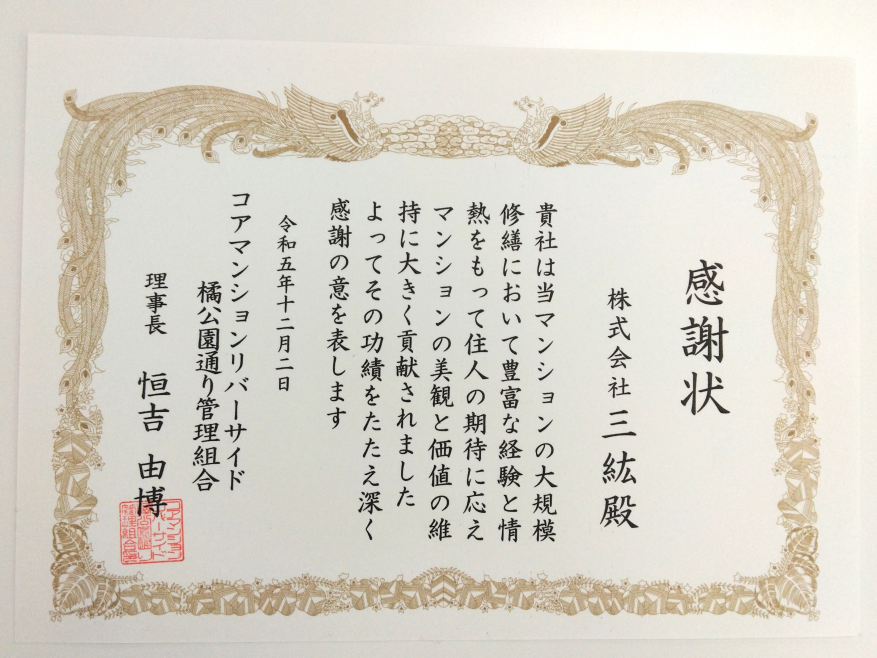 感謝状
株式会社 三紘殿
貴社は当マンションの大規模
修繕において豊富な経験と情
熱をもって住人の期待に応え
マンションの美観と価値の維
持に大きく貢献されました
よってその功績をたたえ深く
感謝の意を表します
令和五年十二月二日
コアマンションリバーサイド
橘公園通り管理組合
理事長 恒吉 由博